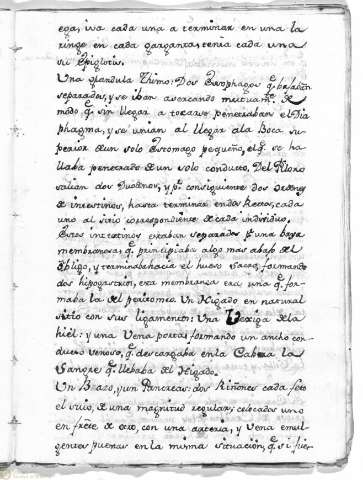 ega, iva cada una a terminar en una la
ringe en cada garganza, tenia cada una
su Epiglotis.
Una glandula Thimo: Dos Esophagos q.e bajaban
separados, y se iban acercando mutuam.te de
modo q.e sin llegar a tocarse penetraban el Dia
phragma, y se unian al llegar ala Boca su
perior de un solo Estomago pequeño, el q.e se ha
llaba penetrado de un solo conducto, Del Piloro
salian dos Duodenos, y p.r consiguiente dos
de intestinos, hasta terminar en dos Rectos, cada
uno al sitio correspondiente de cada individuo,
Estos intestinos estaban separados p.r una
membranosa, q.e principiaba algo mas abajo del
obligo, y terminaba hacia el hueso Sacro, formando
dos hipogastrios, esta membrana era una q.e for-
maba la del peritoneo. Un Higado en natural
sitio con sus ligamentos: Una Vexiga de la
hiel: y una Vena porta, formando un ancho con
ducto venoso, q.e descargaba en la Cabeza la
Sangre q.e llebaba del Higado.
Un Bazo, y un Pancreas: dos Riñones cada feto
el suio, de una magnitud regular; colocados uno
en frete de otro, con una arteria, y Vena emul
gentes puestas en la misma situación, q.e si fue